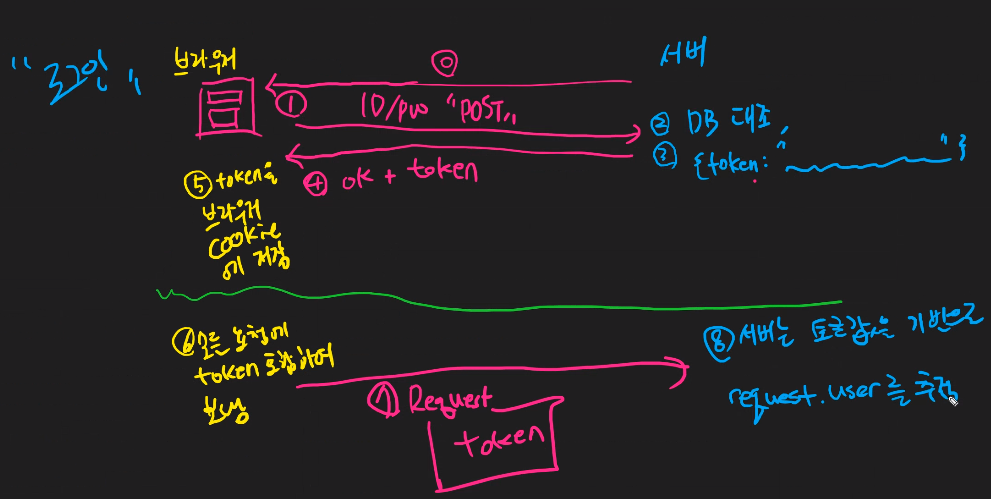 "로그인"
브라우저
⓪
서버
① ID/pw "POST"
② DB 대조
③ {token: " "}
④ ok + token
⑤ token을
브라우저
cookie
에 저장
⑥ 모든 요청에
token 포함하여
보냄
⑦ Request
token
⑧ 서버는 토큰값을 기반으로
request.user를 추적